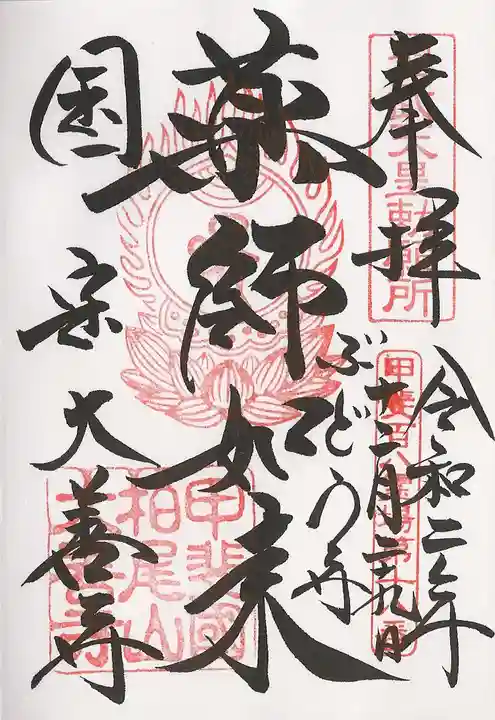 奉拝
令和二年
十二月二十九日
ぶどう寺
薬師如来
国宝 大善寺
天皇勅願所
甲斐百八霊場第
甲斐國
柏尾山
大善寺